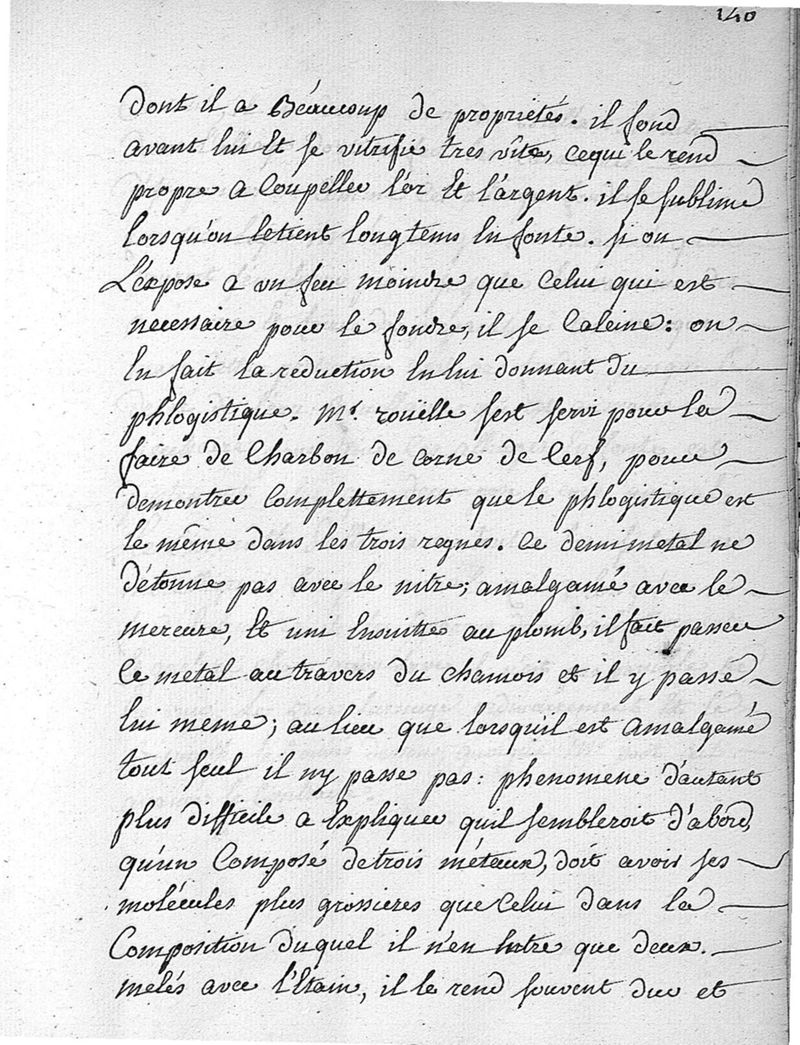 140
dont il a Béaucoup de propriétés. il fond
avant lui Et se vitrifie tres vîte, cequi le rend
propre a Coupeller l'or Et l'argent. il se sublime
lorsqu'on letient longtems En fonte. si on
L'expose a un feu moindre que Celui qui est
necessaire pour le fondre, il se Calcine: on
En fait la reduction En lui donnant du
phlogistique. Mr. rouëlle s'est servi pour la
faire de Charbon de corne de Cerf, pour
demontrer Complettement que le phlogistique est
le même dans les trois regnes. Ce demi metal ne
détonne pas avec le nitre; amalgamé avec le
mercure, Et uni Ensuitte au plomb, il fait passer
Ce metal autravers du chamois et il y passe
lui meme; aulieu que lorsqu'il est amalgamé
tout seul il ny passe pas: phenomene d'autant
plus difficile a Expliquer quil sembleroit d'abord,
qu'un Composé detrois métaux, doit avoir ses
molécules plus grossieres que Celui dans la
Composition duquel il n'en Entre que deux.
melés avec l'Etain, il le rend souvent dur et